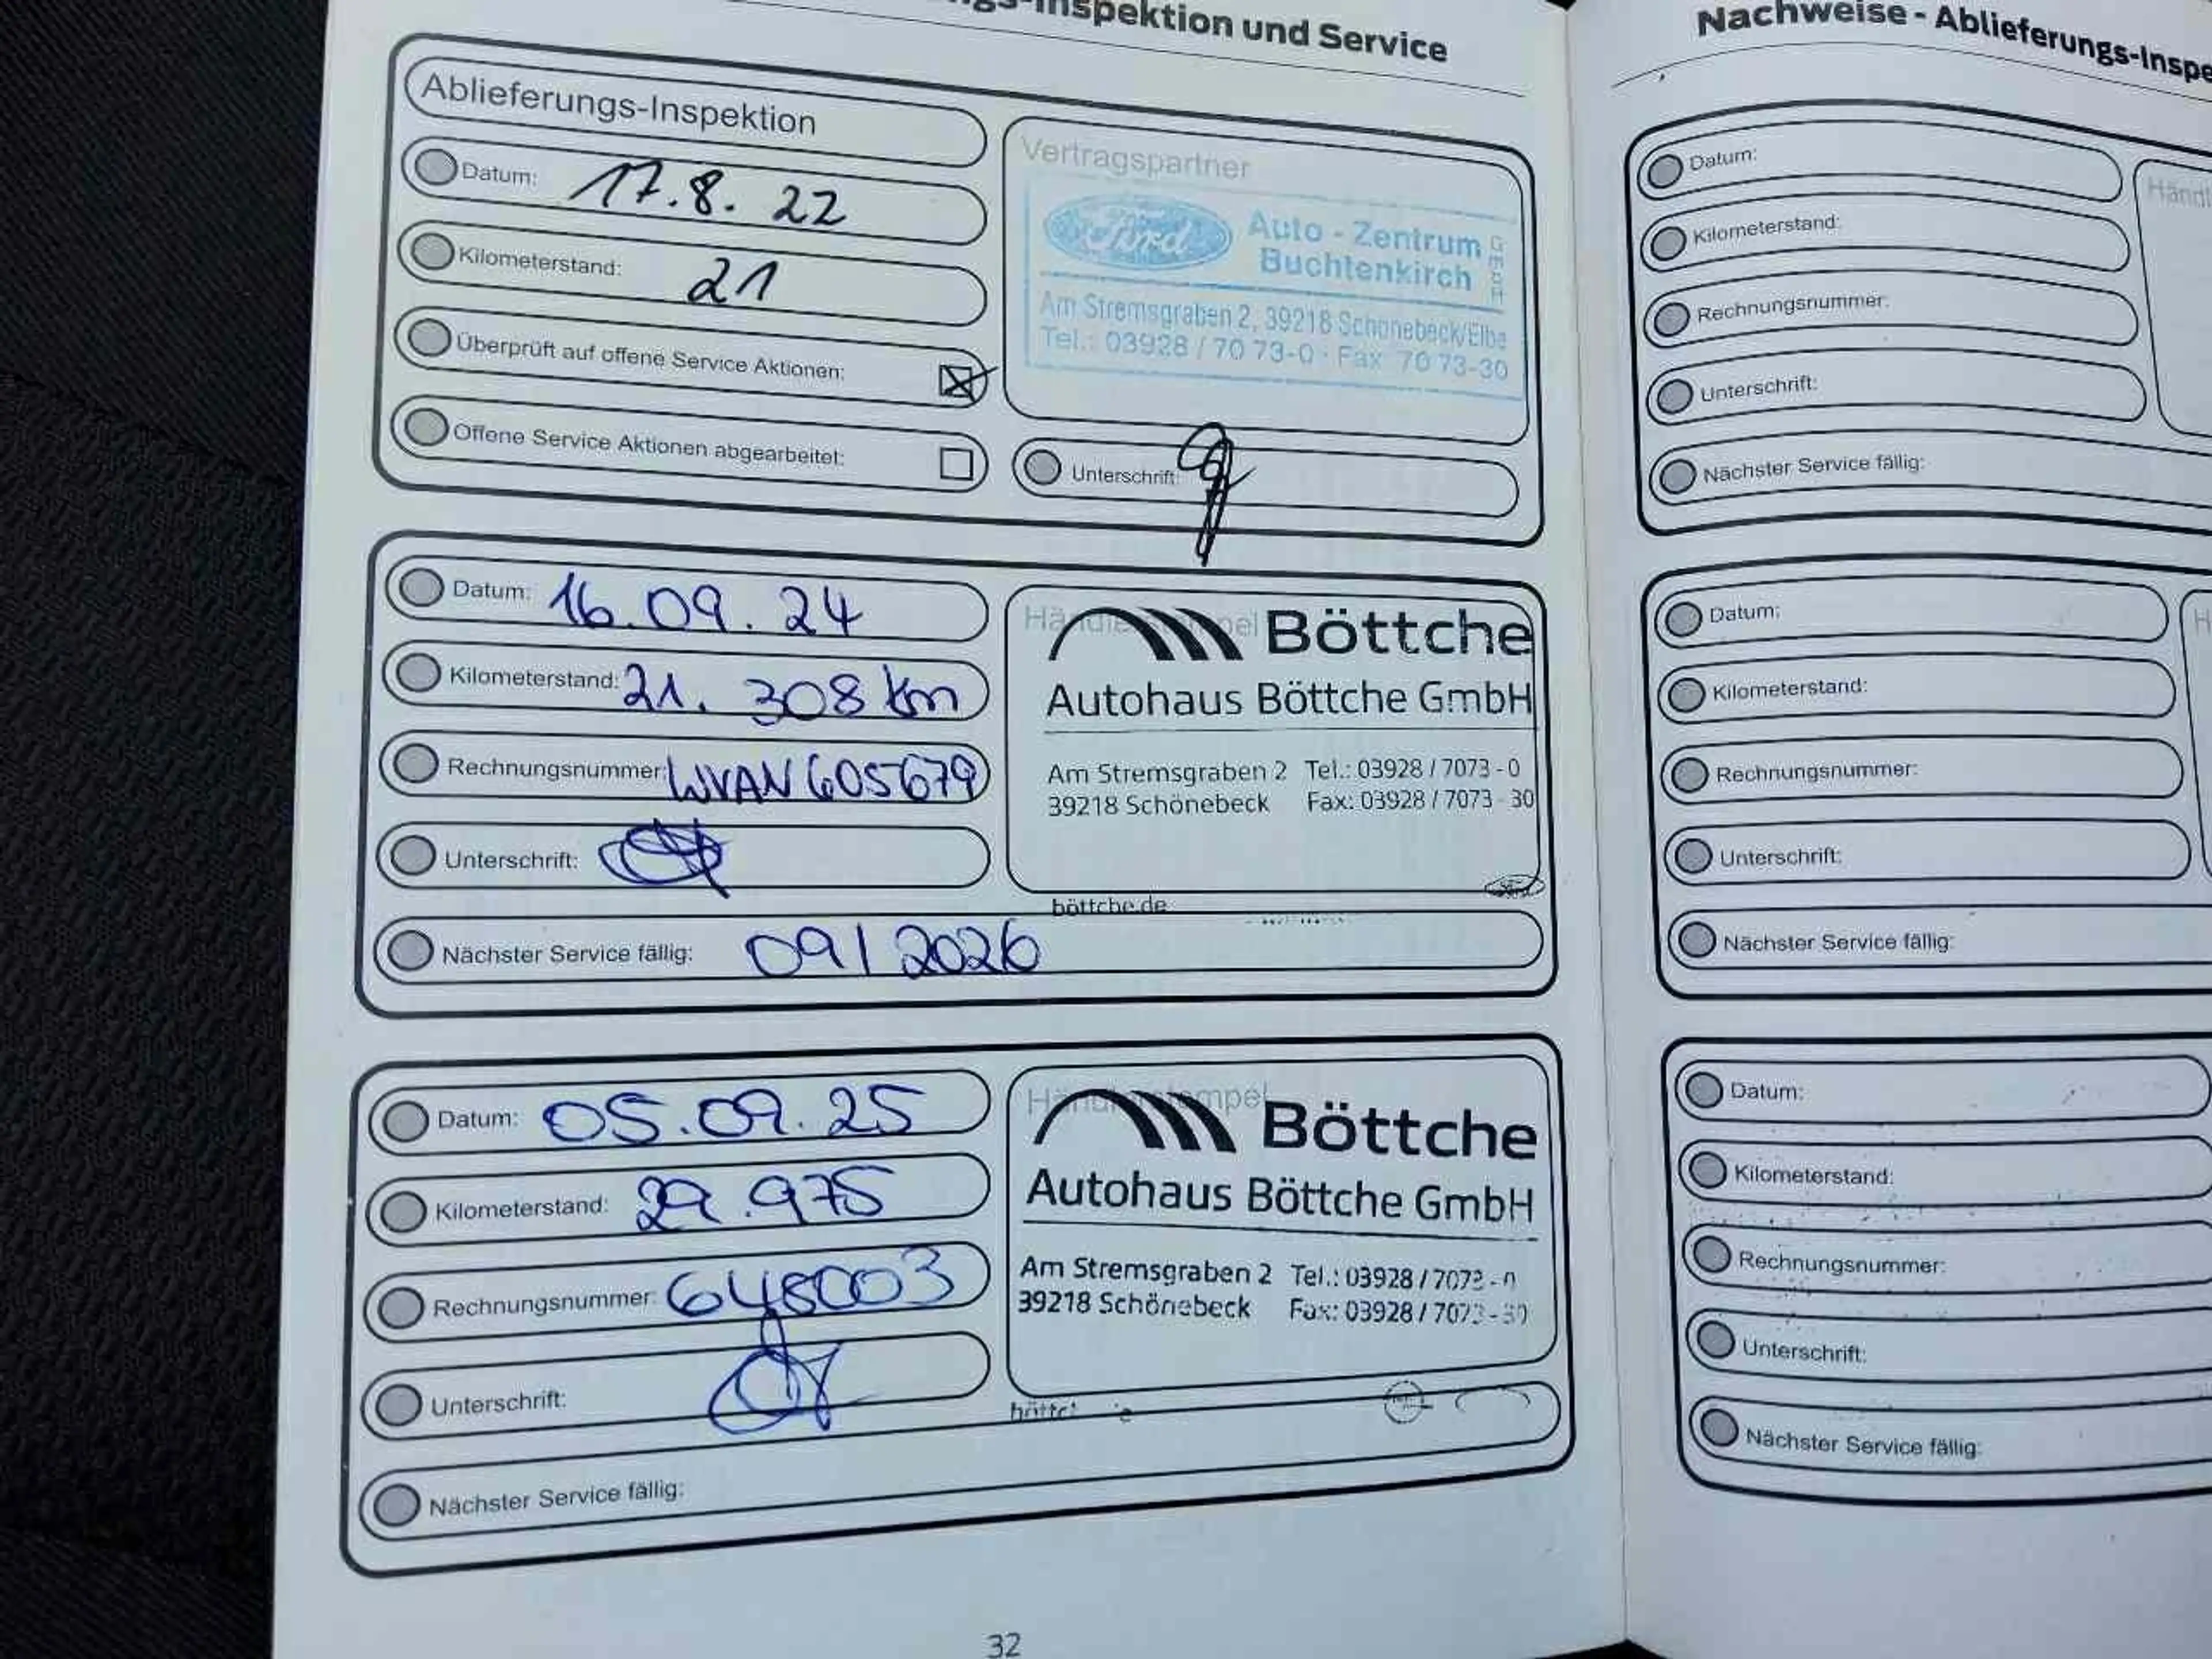 -Inspektion und Service
Ablieferungs-Inspektion
Datum: 17.8.22
Kilometerstand: 21
Überprüft auf offene Service Aktionen:
Offene Service Aktionen abgearbeitet:
Vertragspartner
Ford Auto - Zentrum
Buchtenkirch GmbH
Am Stremsgraben 2, 39218 Schönebeck/Elbe
Tel.: 03928 / 70 73-0 · Fax 70 73-30
Unterschrift:
Datum: 16.09.24
Kilometerstand: 21.308 km
Rechnungsnummer: WVAN605679
Unterschrift:
Nächster Service fällig: 09/2026
Händlerstempel
Böttche
Autohaus Böttche GmbH
Am Stremsgraben 2 Tel.: 03928 / 7073 - 0
39218 Schönebeck Fax: 03928 / 7073 - 30
böttche.de
Datum: 05.09.25
Kilometerstand: 29.975
Rechnungsnummer: 648003
Unterschrift:
Nächster Service fällig:
Händlerstempel
Böttche
Autohaus Böttche GmbH
Am Stremsgraben 2 Tel.: 03928 / 7073 - 0
39218 Schönebeck Fax: 03928 / 7073 - 30
32
Nachweise - Ablieferungs-Inspe
Datum:
Kilometerstand:
Rechnungsnummer:
Unterschrift:
Nächster Service fällig:
Händl
Datum:
Kilometerstand:
Rechnungsnummer:
Unterschrift:
Nächster Service fällig:
H
Datum:
Kilometerstand:
Rechnungsnummer:
Unterschrift:
Nächster Service fällig: